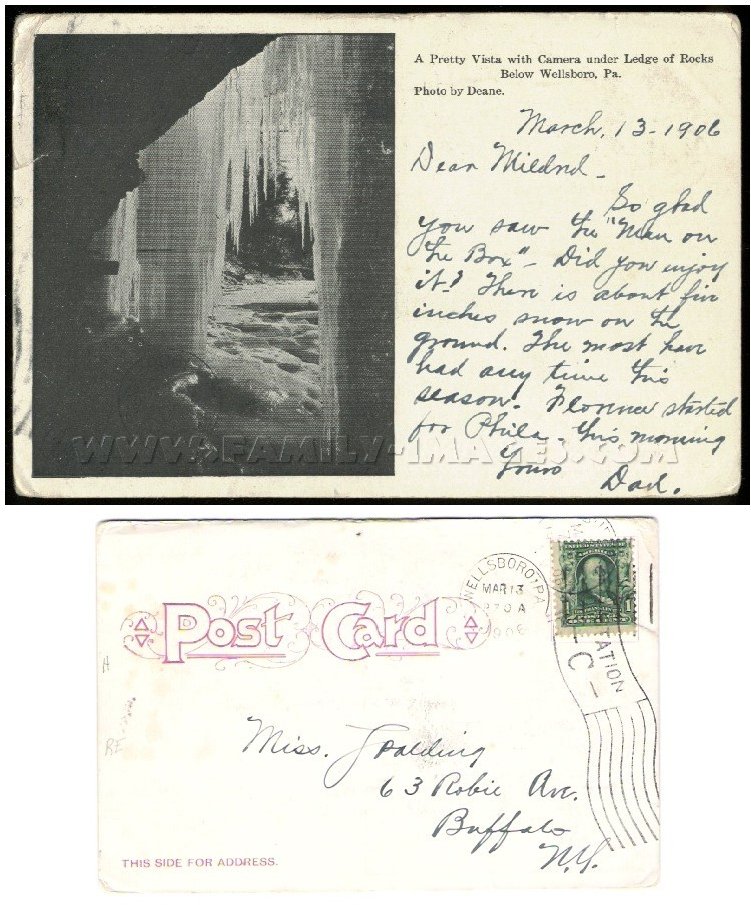 A Pretty Vista with Camera under Ledge of Rocks
Below Wellsboro, Pa.
Photo by Deane.
March, 13-1906
Dear Mildred -
So glad
you saw the "Man on
the Box" - Did you enjoy
it? There is about five
inches snow on the
ground. The most have
had any time this
season. Florence started
for Phila. this morning
Yours
Dad.
WWW.FAMILY-IMAGES.COM
WELLSBORO, PA.
MAR 13
1906
STATION
C
1
Post Card
Miss. Spalding
63 Robie Ave.
Buffalo
N.Y.
THIS SIDE FOR ADDRESS.